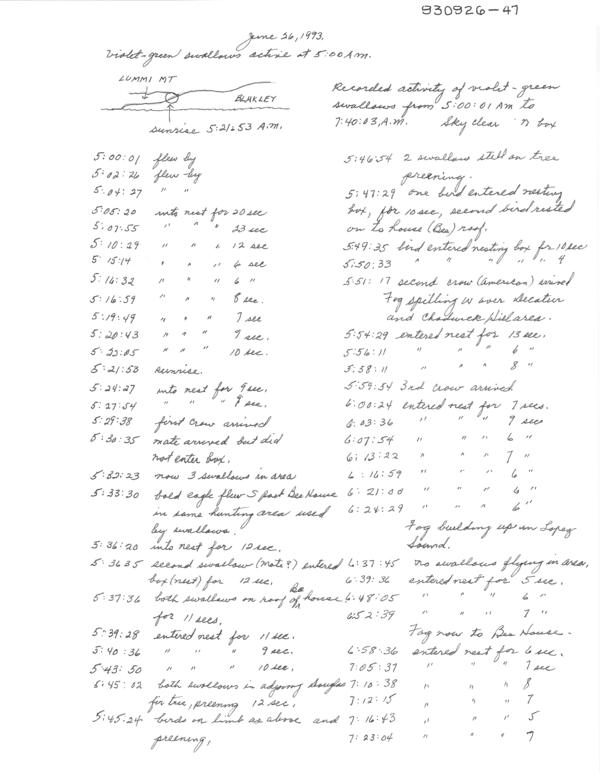 930926-47
June 26, 1993.
violet-green swallows active at 5:00 A.M.
LUMMI MT
BLAKLEY
sunrise 5:21:53 A.M.
5:00:01 flew by
5:02:26 flew-by
5:04:27 " "
5:05:20 into nest for 20 sec
5:07:55 " " " 23 sec
5:10:29 " " " 12 sec
5:15:14 " " " 6 sec
5:16:32 " " " 6 "
5:16:59 " " " 8 sec.
5:19:49 " " " 7 sec
5:20:43 " " " 9 sec.
5:22:05 " " " 10 sec.
5:21:53 sunrise.
5:24:27 into nest for 9 sec.
5:27:54 " " " 9 sec.
5:29:38 first crow arrived
5:30:35 mate arrived but did
not enter box.
5:32:23 now 3 swallows in area
5:33:30 bald eagle flew S past Bee House
in same hunting area used
by swallows.
5:36:20 into nest for 12 sec.
5:36 35 second swallow (mate?) entered
box (nest) for 12 sec.
5:37:36 both swallows on roof of Bee house
for 11 secs.
5:39:28 entered nest for 11 sec.
5:40:36 " " " 9 sec.
5:43:50 " " " 10 sec.
5:45:02 both swallows in adjoining Douglas
fir tree, preening 12 sec.
5:45:24 birds on limb as above and
preening,
Recorded activity of violet-green
swallows from 5:00:01 AM to
7:40:03, A.M. Sky clear box
5:46:54 2 swallow still on tree
preening.
5:47:29 one bird entered nesting
box, for 10 sec, second bird rested
on to house (Bee) roof.
5:49:35 bird entered nesting box for 10 sec
5:50:33 " " " " " 9
5:51:17 second crow (American) arrived
Fog spilling W over Decatur
and Chadwick Hill area.
5:54:29 entered nest for 13 sec.
5:56:11 " " " 6 "
5:58:11 " " " 8 "
5:59:54 3rd crow arrived
6:00:24 entered nest for 7 secs.
6:03:36 " " " 9 sec
6:07:54 " " " 6 "
6:13:22 " " " 7 "
6:16:59 " " " 6 "
6:21:00 " " " 6 "
6:24:29 " " " 6 "
Fog building up in Lopez
Sound.
6:37:45 no swallows flying in area,
6:39:36 entered nest for 5 sec.
6:48:05 " " " 6 "
6:52:39 " " " 7 "
Fog now to Bee House.
6:58:36 entered nest for 6 sec.
7:05:37 " " " 7 sec
7:10:38 " " " 8
7:12:15 " " " 7
7:16:43 " " " 5
7:23:04 " " " 7